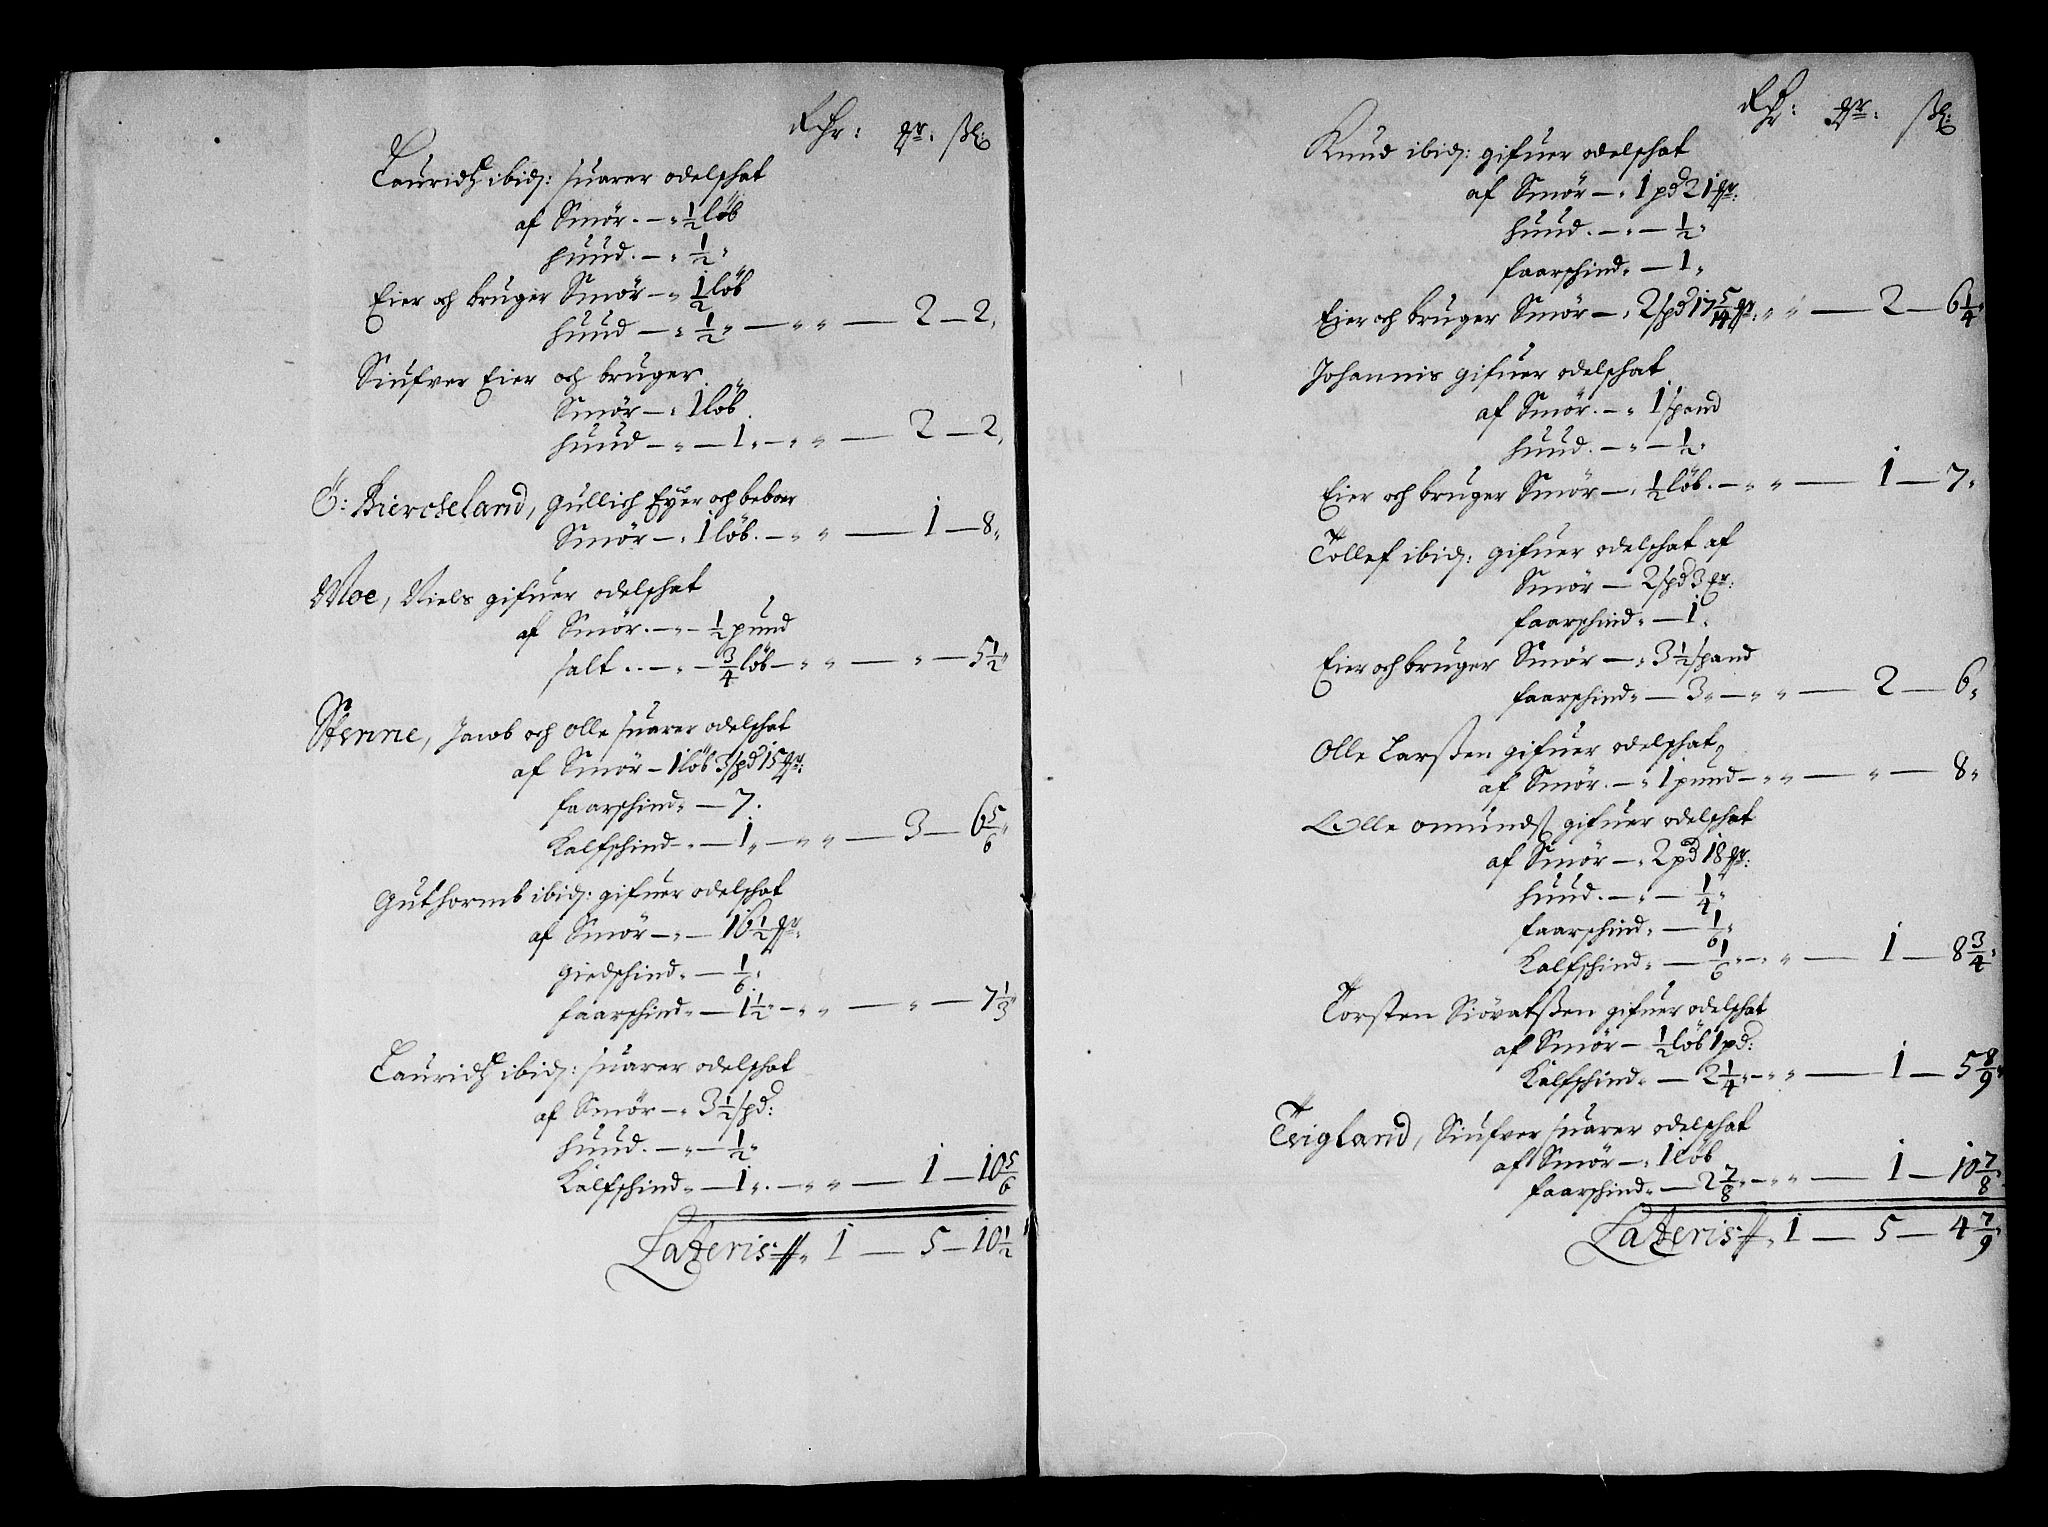 Rdr: qr. ßl:
Lauridtz ibid: suarer odelschat
af Smör. — „ ½ löb
huud. — „ ½ „
Eier och bruger Smör — „ ½ löb
huud — „ ½ „ — „ „ — 2 — 2 „
Siufver Eier och bruger.
Smör — „ 1 löb
huud — „ — 1 „ — „ „ — 2 — 2 „
Ö: Biercheland, Gullich Eyer och beboer
Smör — „ 1 löb. — „ „ — 1 — 8 „
Moe, Niels gifuer odelschat
af Smör. — „ — ½ pund
salt .. — „ — ¾ löb — „ „ — „ — 5½ „
Stenne, Jacob och Olle suarer odelschat
af Smör — 1 löb 3 spd 15 mr:
faarschind „ — 7.
Kalfschind — „ — 1 „ — „ „ — 3 — 6 5/6 „
Guthormb ibid: gifuer odelschat
af Smör — „ — 16½ mr.
giedschind „ — 1/6 „
faarschind „ — 1½ „ — „ „ — „ — 7⅓ „
Lauridtz ibid: suarer odelschat
af Smör — „ 3½ spd:
huud. — „ — ½ „
Kalfschind „ — 1 „. — „ „ — 1 — 10 5/6
Lateris „ 1 — 5 — 10½
Rdr: qr. ßl:
Knud ibid: gifuer odelschat
af Smör — „ 1 pd 21 mr:
huud. — „ — ½ „
faarschind „ — 1 „
Eier och bruger Smör — „ 2 spd 17 5/14 mr. „ „ — 2 — 6¼ „
Johannis gifuer odelschat
af Smör. — „ 1 spand
huud. — „ — ½ „
Eier och bruger Smör — „ ½ löb. — „ „ — 1 — 7 „
Tollef ibid: gifuer odelschat af
Smör — 2 spd 3 mr:
faarschind „ — 1 „
Eier och bruger Smör — „ 3½ spand
faarschind „ — 3 „ — „ „ — 2 — 6 „
Olle Larßen gifuer odelschat
af Smör. — „ 1 pund — „ „ — „ — 8 „
Olle Omunds gifuer odelschat
af Smör — „ 2 pd 18 mr:
huud. — „ — ¼ „
faarschind „ — 1/6 „
Kalfschind „ — 1/6 „ — „ „ — 1 — 8¾ „
Torsten Siövatßen gifuer odelschat
af Smör — ½ löb 1 pd:
Kalfschind „ — 2¼ „ — „ „ — 1 — 5 8/9 „
Tvigland, Siufver suarer odelschat
af Smör — „ 1 löb
faarschind „ — 2⅞ „ — „ „ — 1 — 10⅞ „
Lateris „ 1 — 5 — 4 7/9 „